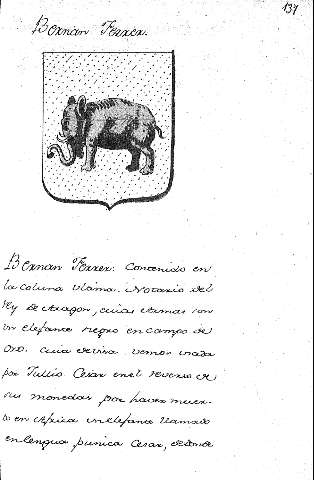 137
Bernan Ferrer.
Bernan Ferrer. Contenido en
la coluna vltima. Notario del
Rey de Aragon, cuias armas son
vn elefante negro en campo de
Oro. cuia devisa vemos usada
por Jullio Cesar en el reverso de
sus monedas por haver muer-
to en Africa un elefante llamado
en lengua punica Cesar, de donde